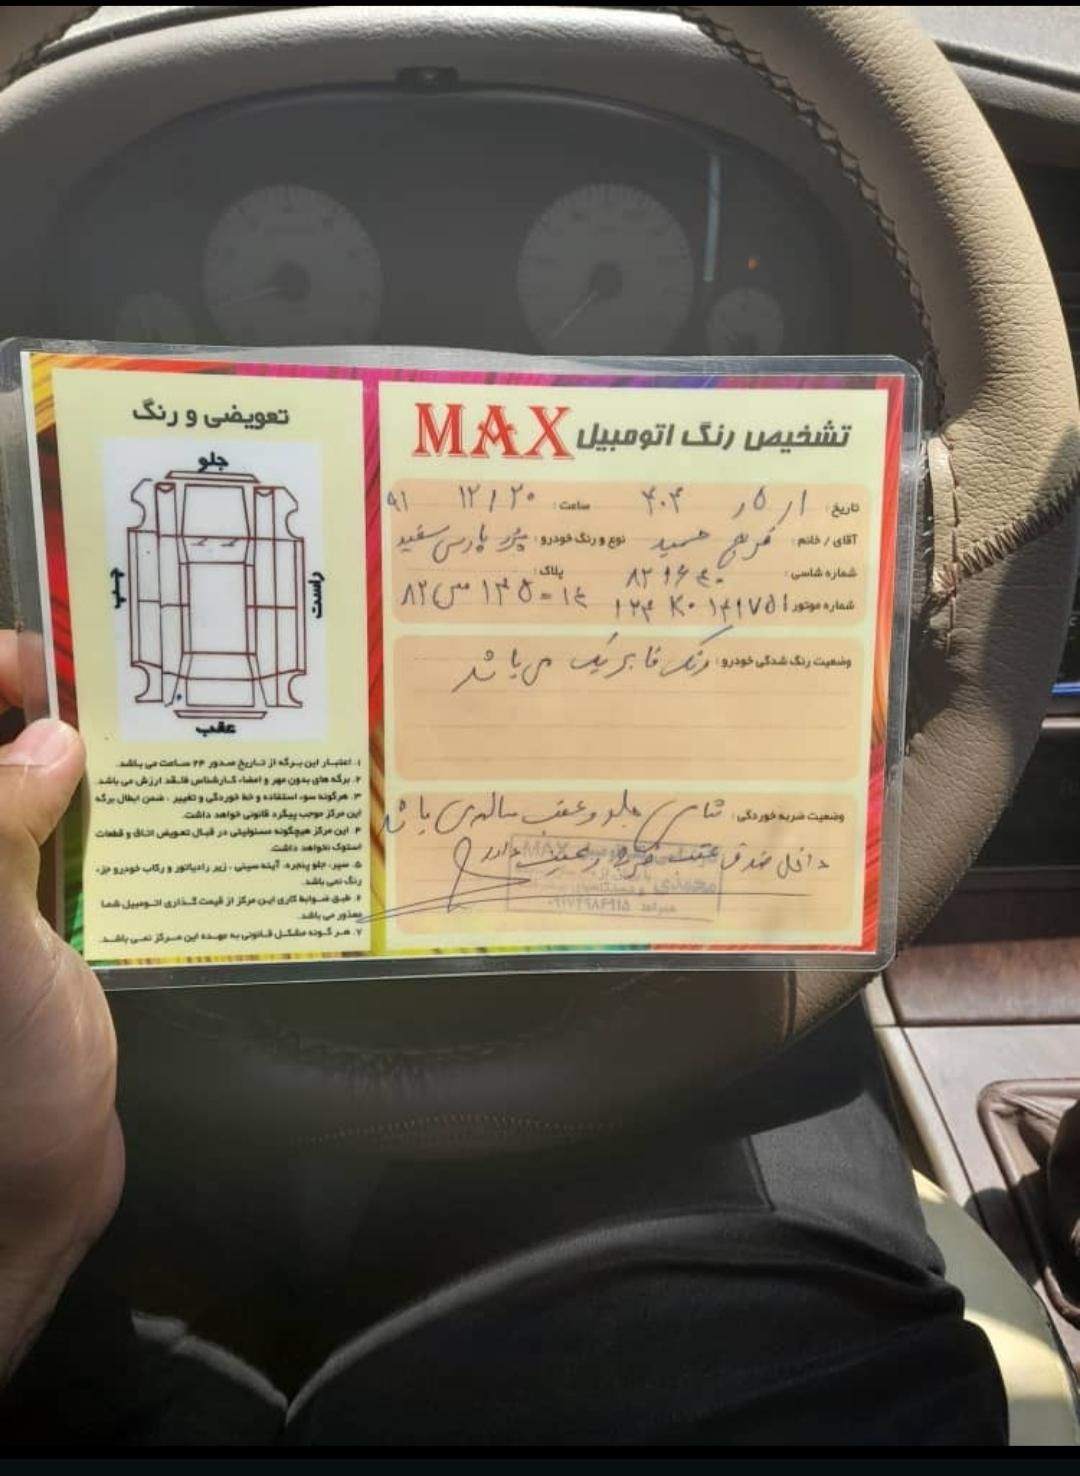 تشخیص رنگ اتومبیل MAX
تاریخ: ۱ / ۵ / ۴۰۴ ساعت: ۱۲/۲۰ ۹۱
آقای / خانم: فرج حمید نوع و رنگ خودرو: پژو پارس سفید
شماره شاسی: ۸۲۹۶۴۰ پلاک:
شماره موتور ۱۲۴K۰۱۴۱۷۵۱ ۸۲ س ۱۳۵ = ۱۴
وضعیت رنگ شدگی خودرو: رنگ فابریک می باشد
وضعیت ضربه خوردگی: شاسی جلو و عقب سالم می باشد
داخل صندوق عقب
MAX
محمدی
تعویضی و رنگ
جلو
چپ
راست
عقب
۱. اعتبار این برگه از تاریخ صدور ۲۴ ساعت می باشد.
۲. برگه های بدون مهر و امضاء کارشناس فاقد ارزش می باشد.
۳. هرگونه سوء استفاده و خط خوردگی و تغییر ، ضمن ابطال برگه
این مرکز موجب پیگرد قانونی خواهد داشت.
۴. این مرکز هیچگونه مسئولیتی در قبال تعویض اتاق و قطعات
استوک نخواهد داشت.
۵. سپر، جلو پنجره، آینه سینی ، زیر رادیاتور و رکاب خودرو جزء
رنگ نمی باشد.
۶. طبق ضوابط کاری این مرکز از قیمت گذاری اتومبیل شما
معذور می باشد.
۷. هر گونه مشکل قانونی به عهده این مرکز نمی باشد.